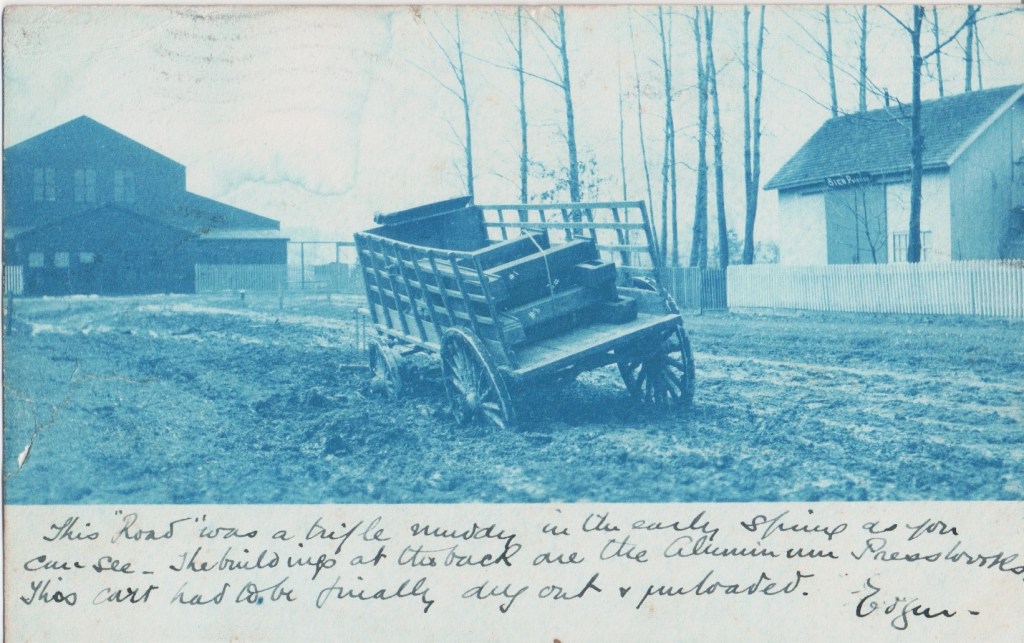 SIGN
This "Road" was a trifle muddy in the early Spring as you
can see - The buildings at the back are the Aluminum Press Works
This cart had to be finally dug out & unloaded.
Edgar -